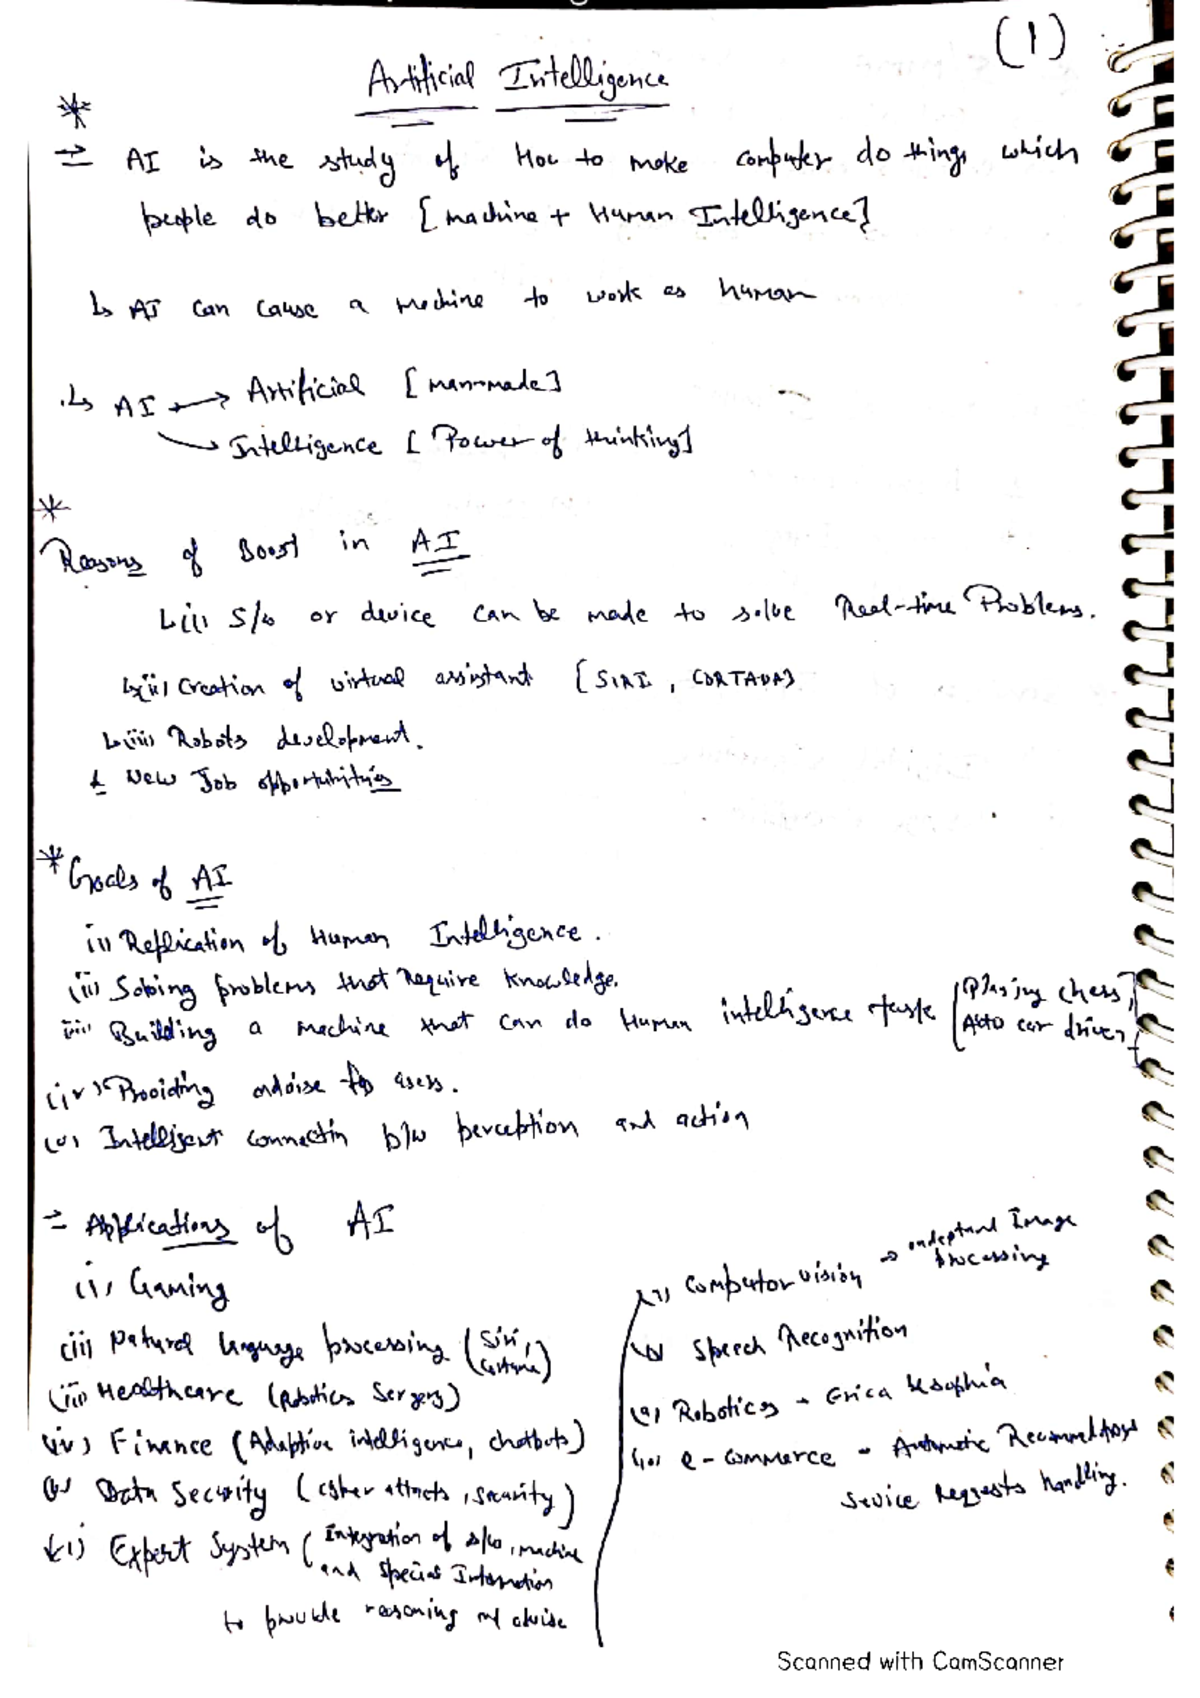 (1)
Artificial Intelligence
AI is the study of How to make computer do things which
people do better [machine + Human Intelligence]
AI can cause a machine to work as human
AI → Artificial [man-made]
→ Intelligence [Power of thinking]
Reasons of Boost in AI
(i) S/w or device can be made to solve Real-time Problems.
(ii) Creation of virtual assistant [SIRI, CORTANA]
(iii) Robots development.
New Job opportunities
Goals of AI
(i) Replication of Human Intelligence.
(ii) Solving problems that Require knowledge.
(iii) Building a machine that can do Human intelligence task [Playing chess,
Auto car driver]
(iv) Providing advise to users.
(v) Intelligent connectin b/w perception and action
⇒ Applications of AI
(i) Gaming
(ii) Natural language processing (Siri, Cortana)
(iii) Healthcare (Robotics Sergery)
(iv) Finance (Adaptive intelligence, chatbots)
(v) Data Security (cyber attacts, security)
(vi) Expert System (Integration of s/w, machine
and special Information
to provide reasoning and advise
(7) Computor vision → Image
processing
(8) Speech Recognition
(9) Robotics - Erica & sophia
(10) e-commerce - Automatic
Service Requests handling.
Scanned with CamScanner